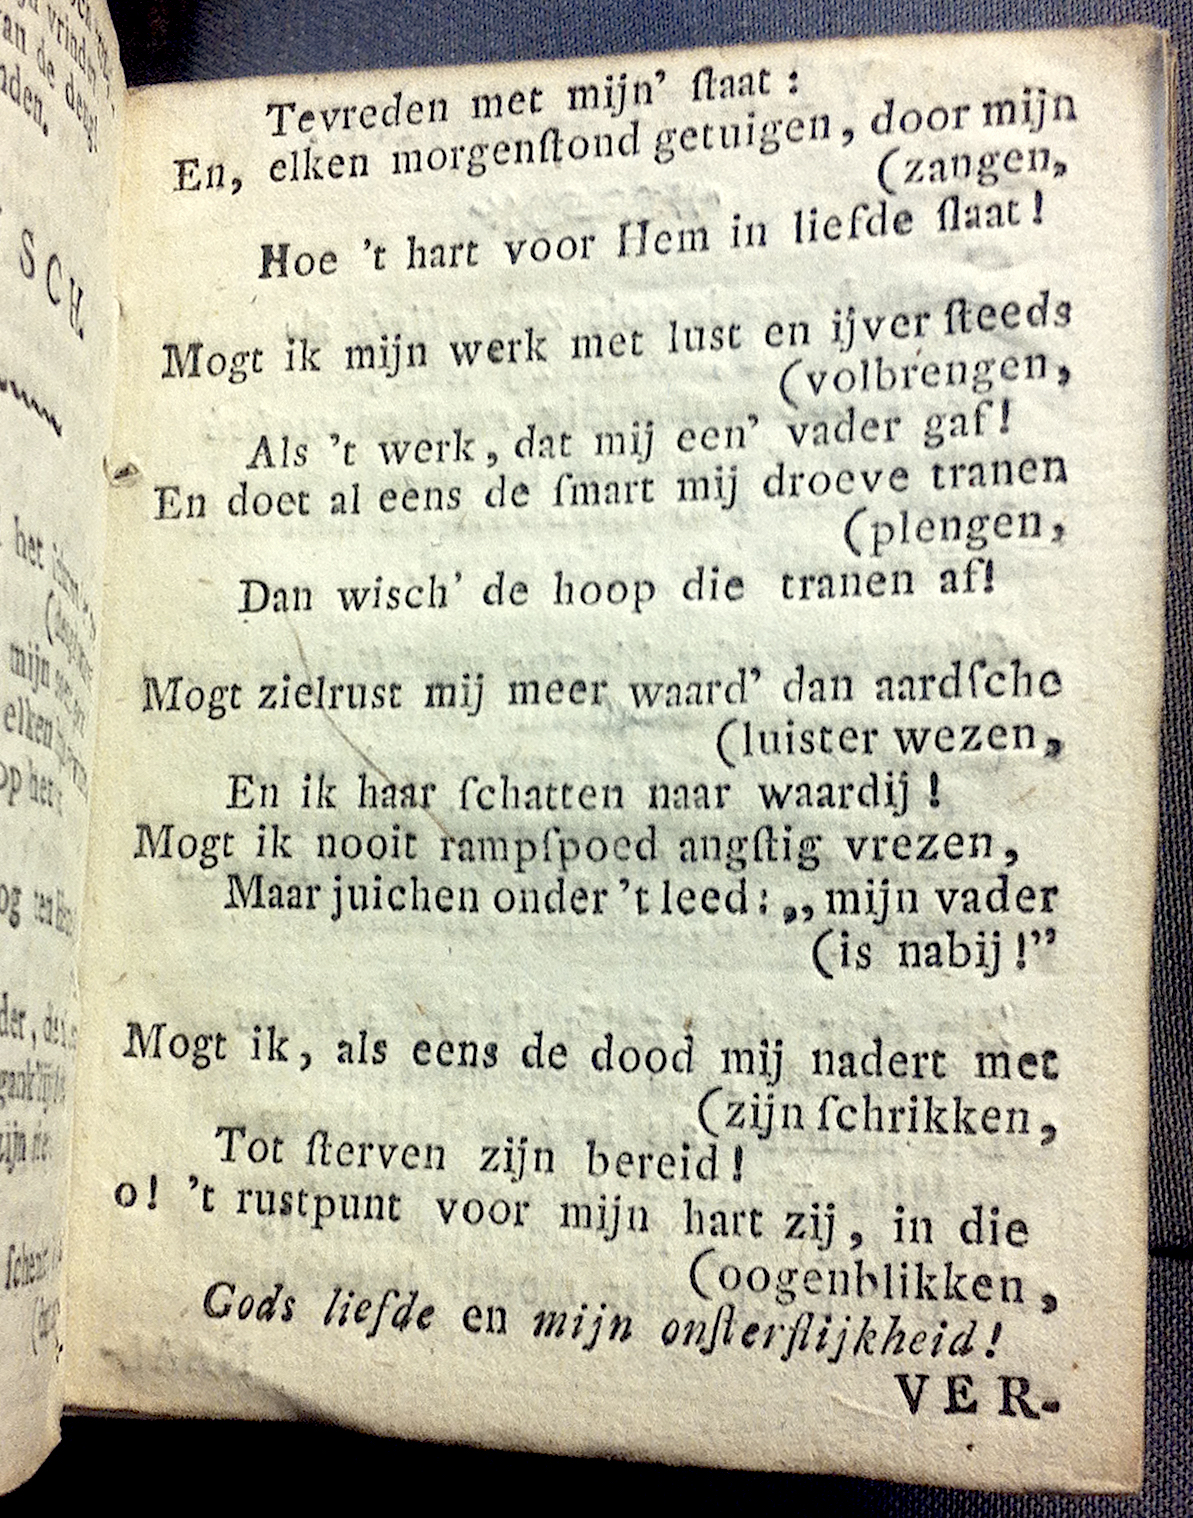 Tevreden met mijn' ſtaat:
En, elken morgenſtond getuigen, door mijn
(zangen,
Hoe 't hart voor Hem in liefde ſlaat!
Mogt ik mijn werk met lust en ijver ſteeds
(volbrengen,
Als 't werk, dat mij een' vader gaf!
En doet al eens de ſmart mij droeve tranen
(plengen,
Dan wisch' de hoop die tranen af!
Mogt zielrust mij meer waard' dan aardſche
(luister wezen,
En ik haar ſchatten naar waardij!
Mogt ik nooit rampſpoed angſtig vrezen,
Maar juichen onder 't leed: „mijn vader
(is nabij!”
Mogt ik, als eens de dood mij nadert met
(zijn ſchrikken,
Tot ſterven zijn bereid!
o! 't rustpunt voor mijn hart zij, in die
(oogenblikken,
Gods liefde en mijn onſterflijkheid!
VER-
van de
nden.
SCH.
het
mijn
elken
op het